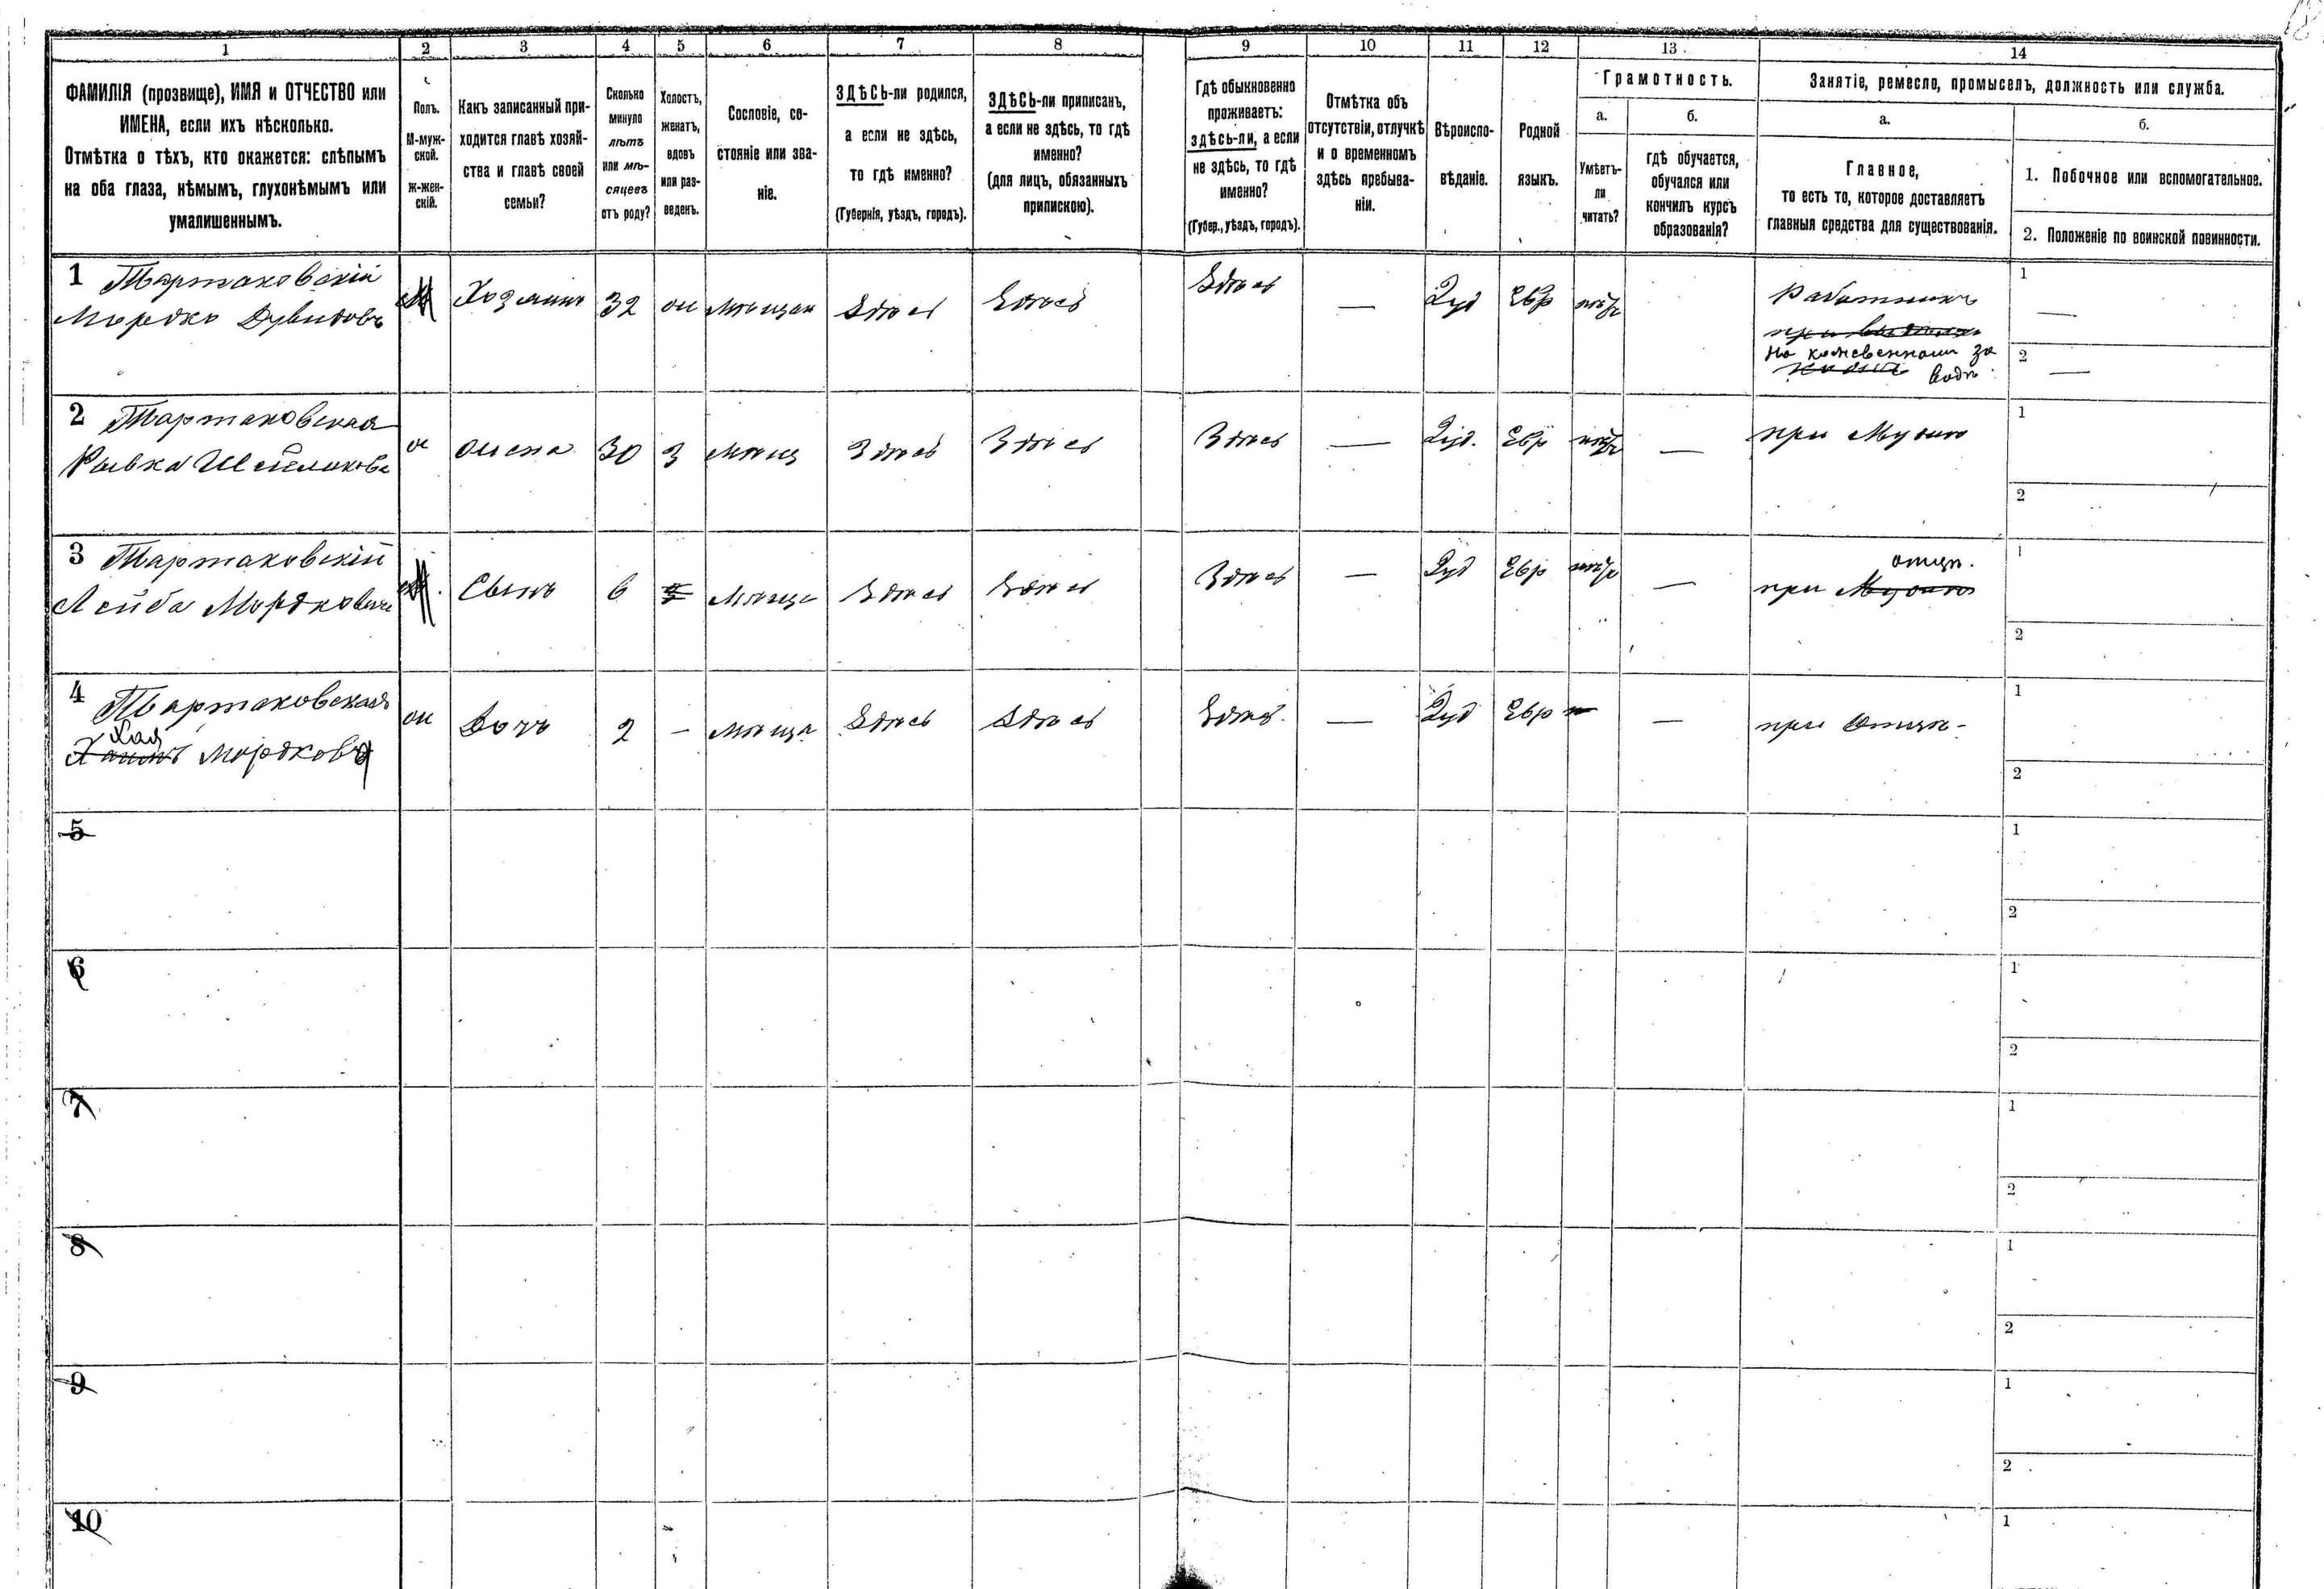 1 2 3 4 5 6 7 8 9 10 11 12 13 14
ФАМИЛІЯ (прозвище), ИМЯ и ОТЧЕСТВО или
ИМЕНА, если ихъ нѣсколько.
Отмѣтка о тѣхъ, кто окажется: слѣпымъ
на оба глаза, нѣмымъ, глухонѣмымъ или
умалишеннымъ.
Полъ.
М-муж-
ской.
ж-жен-
скій.
Какъ записанный при-
ходится главѣ хозяй-
ства и главѣ своей
семьи?
Сколько
минуло
лѣтъ
или мѣ-
сяцевъ
отъ роду?
Холостъ,
женатъ,
вдовъ
или раз-
веденъ.
Сословіе, со-
стояніе или зва-
ніе.
ЗДѢСЬ-ли родился,
а если не здѣсь,
то гдѣ именно?
(Губернія, уѣздъ, городъ).
ЗДѢСЬ-ли приписанъ,
а если не здѣсь, то гдѣ
именно?
(для лицъ, обязанныхъ
припискою).
Гдѣ обыкновенно
проживаетъ:
здѣсь-ли, а если
не здѣсь, то гдѣ
именно?
(Губер., уѣздъ, городъ).
Отмѣтка объ
отсутствіи, отлучкѣ
и о временномъ
здѣсь пребыва-
ніи.
Вѣроиспо-
вѣданіе.
Родной
языкъ.
Грамотность.
а.
Умѣетъ-
ли
читать?
б.
гдѣ обучается,
обучался или
кончилъ курсъ
образованія?
Занятіе, ремесло, промыселъ, должность или служба.
а.
Главное,
то есть то, которое доставляетъ
главныя средства для существованія.
б.
1. Побочное или вспомогательное.
2. Положеніе по воинской повинности.
1 Тартаковскій
Мордко Дувидовъ
М Хозяинъ 32 ж Мѣщан Здѣсь Здѣсь Здѣсь — Іуд Евр нѣтъ
Работникъ
на кожевенном за
водѣ
1 —
2 —
2 Тартаковская
Рывка
ж жена 30 з Мѣщ Здѣсь Здѣсь Здѣсь — Іуд. Евр нѣтъ — при Мужѣ
1
2
3 Тартаковскій
Лейба Мордковичъ
М. Сынъ 6 Мѣщ Здѣсь Здѣсь Здѣсь — Іуд Евр нѣтъ —
отцѣ.
при Мужѣ
1
2
4 Тартаковская
Хая
Мордкова
ж Дочь 2 — Мѣща Здѣсь Здѣсь Здѣсь — Іуд Евр — при Отцѣ
1
2
5
1
2
6
1
2
7
1
2
8
1
2
9
1
2
10
1